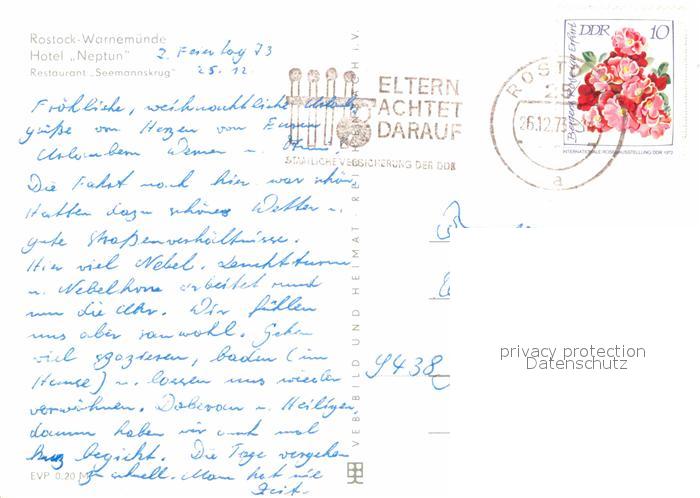 Rostock-Warnemünde
Hotel „Neptun"
Restaurant „Seemannskrug"
2. Feiertag 73
25.12
Fröhliche, weihnachtliche Urlaubs
grüße von Herzen von Euren
Urlaubern Werner u.
Die Fahrt nach hier war schön,
Hatten dazu schönes Wetter u.
gute Straßenverhältnisse.
Hier viel Nebel. Leuchtturm
u. Nebelhorn arbeitet rund
um die Uhr. Wir fühlen
uns aber sauwohl. Gehen
viel spazieren, baden (im
Hause) u. lassen uns wieder
verwöhnen. Doberan u. Heiligen
damm haben wir auch mal
kurz begickt. Die Tage vergehen
zu schnell. Man hat nie
Zeit.
EVP 0,20 M
VEB BILD UND HEIMAT REICHENBACH I. V.
ELTERN
ACHTET
DARAUF
STAATLICHE VERSICHERUNG DER DDR
ROSTOCK
25
26.12.73
a
DDR 10
INTERNATIONALE ROSENAUSSTELLUNG DDR 1972
9438
privacy protection
Datenschutz